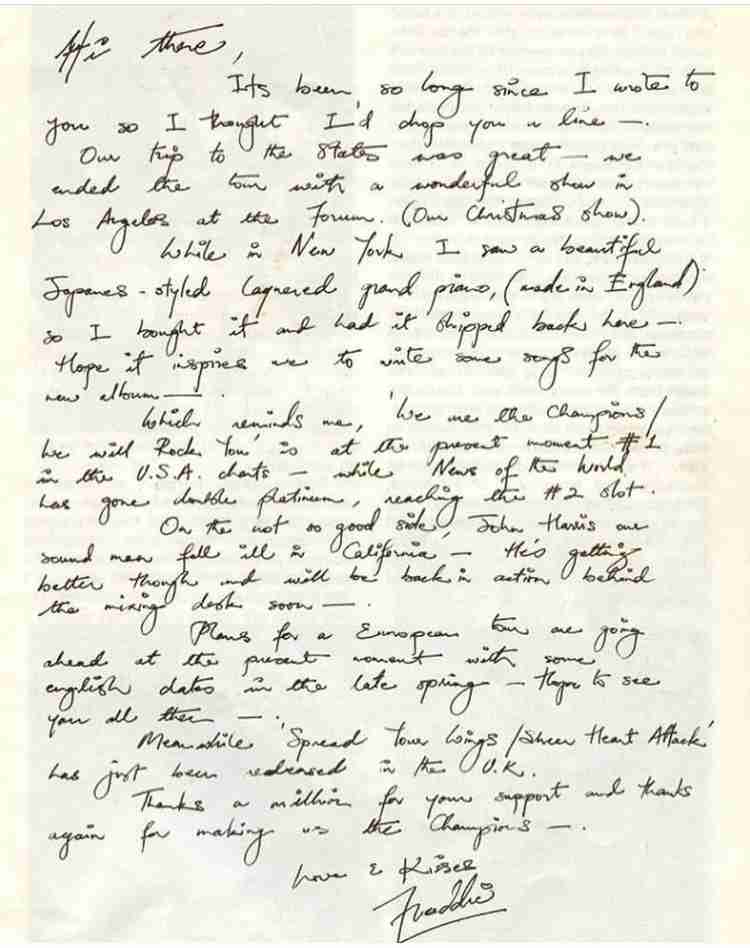 Hi there,
Its been so long since I wrote to
you so I thought I'd drop you a line —.
Our trip to the States was great — we
ended the tour with a wonderful show in
Los Angeles at the Forum. (Our Christmas show).
While in New York I saw a beautiful
Japanes-styled laquered grand piano, (made in England)
so I bought it and had it shipped back here —.
Hope it inspires me to write some songs for the
new album —.
Which reminds me, 'We are the Champions/
We will Rock You' is at the present moment #1
in the U.S.A. charts — while News of the World
has gone double platinum, reaching the #2 slot.
On the not so good side, John Harris our
sound man fell ill in California — He's getting
better though and will be back in action behind
the mixing desk soon —.
Plans for a European tour are going
ahead at the present moment with some
english dates in the late spring — Hope to see
you all then —.
Meanwhile 'Spread Your Wings/Sheer Heart Attack'
has just been released in the U.K.
Thanks a million for your support and thanks
again for making us the Champions —.
Love & Kisses
Freddie